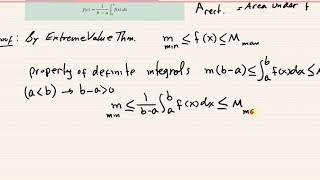 f(c) = 1/(b-a) ∫_a^b f(x) dx
A rect. = Area under f
Proof: By Extreme Value Thm. m_min ≤ f(x) ≤ M_max
property of definite integrals m(b-a) ≤ ∫_a^b f(x)dx ≤ M
(a<b) → b-a>0
m_min ≤ 1/(b-a) ∫_a^b f(x)dx ≤ M_ma